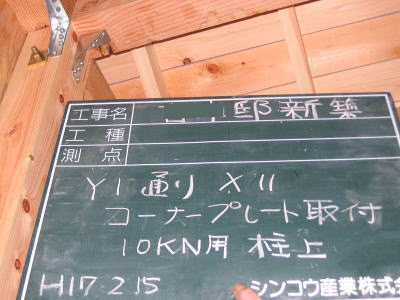 工事名 邸新築
工種
測点
Y1通り X11
コーナープレート取付
10KN用 柱上
H17 2 15 シンコウ産業株式会